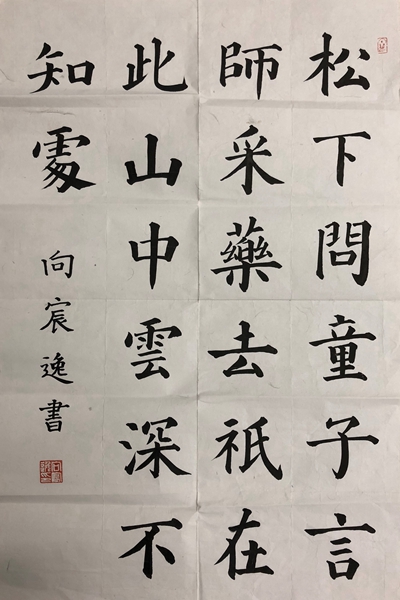 松下問童子言
師采藥去祇在
此山中雲深不
知處
向宸逸書